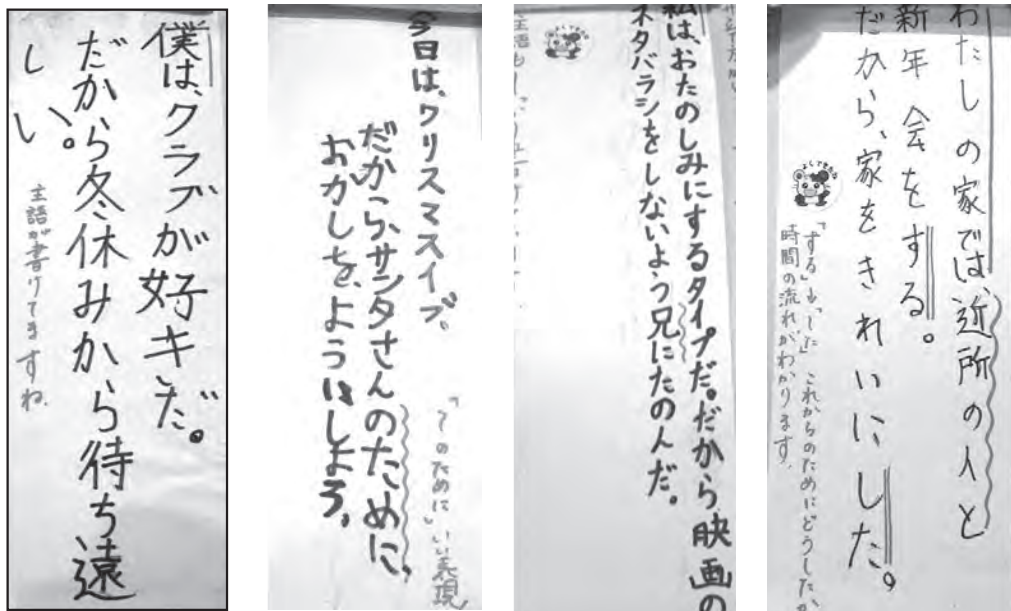 僕は、クラブが好キだ。
だから冬休みから待ち遠
しい。
主語が書けてますね。
今日は、クリスマスイブ、
だから、サンタさんのために、
おかしを、よういしよう。
「〜のために」いい表現
私は、おたのしみにするタイプだ。だから、映画の
ネタバラシをしないよう兄にたのんだ。
わたしの家では、近所の人と
新年会をする。
だから、家をきれいにした。
「する」→「した」これからのためにどうしたか
時間の流れがわかります。